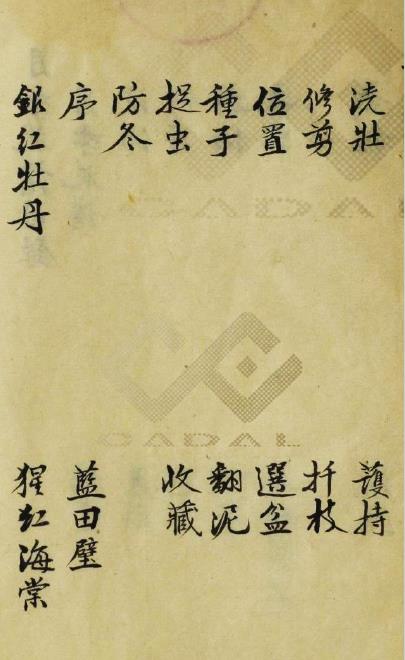 浇壮 護持
修剪 扦枝
位置 選盆
種子 翻泥
捉虫 收藏
防冬
序 藍田璧
銀红牡丹 猩红海棠
CADAL